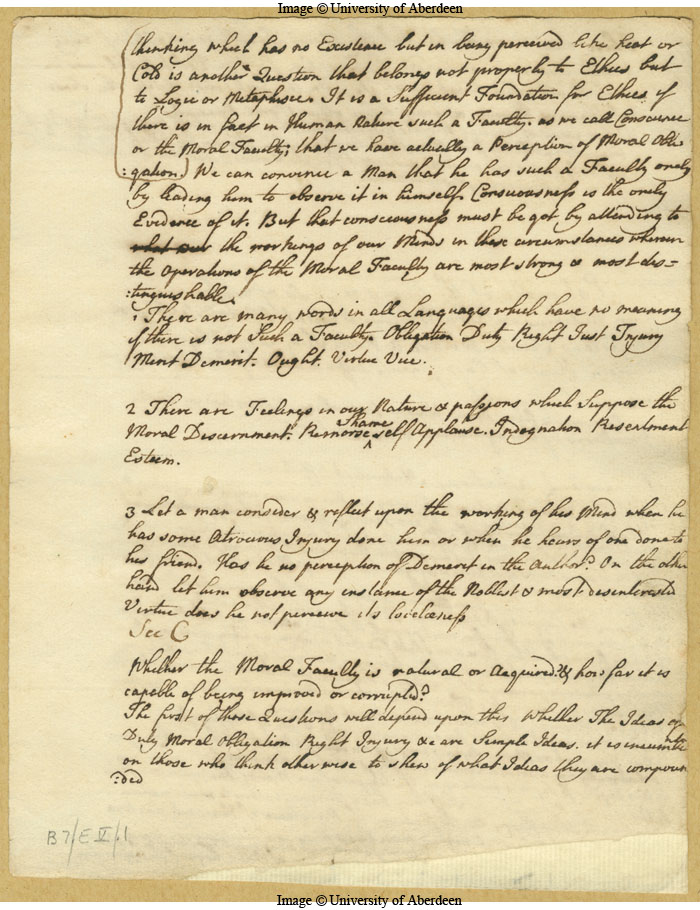 Image © University of Aberdeen
thinking which has no Existence but in being perceived like heat or
Cold is another Question that belongs not properly to Ethics but
to Logic or Metaphisic. It is a Sufficient Foundation for Ethics if
there is in fact in Human Nature such a Faculty. as we call Conscience
or the Moral Faculty; that we have actually a Perception of Moral Obli
:gation.) We can convince a Man that he has such a Faculty onely
by leading him to observe it in himself. Consciousness is the onely
Evidence of it. But that consciousness must be got by attending to
the workings of our Minds in these circumstances wherein
the Operations of the Moral Faculty are most strong & most dis-
:tinguishable.
1 There are many words in all Languages which have no meaning
if there is not Such a Faculty. Obligation Duty Right Just Injury
Merit Demerit. Ought. Virtue Vice.
2 There are Feelings in our Nature & passions which Suppose the
Moral Discernment. Remorse Shame self Applause. Indegnation Resentment
Esteem.
3 Let a man consider & reflect upon the working of his Mind when he
has some Atrocious Injury done him or when he hears of one done to
his friend. Has he no perception of Demerit in the Author? On the other
hand let him observe any instance of the Noblest & most desinterested
Virtue does he not perceive its loveleness
See C
Whether the Moral Faculty is natural or Acquired? & how far it is
capable of being improved or corrupted?
The first of these Questions will depend upon this Whether The Ideas of
Duty Moral Obligation Right Injury &c are Simple Ideas. it is incumbent
on those who think otherwise to shew of what Ideas they are compoun
:ded
B7/E V/.1
Image © University of Aberdeen